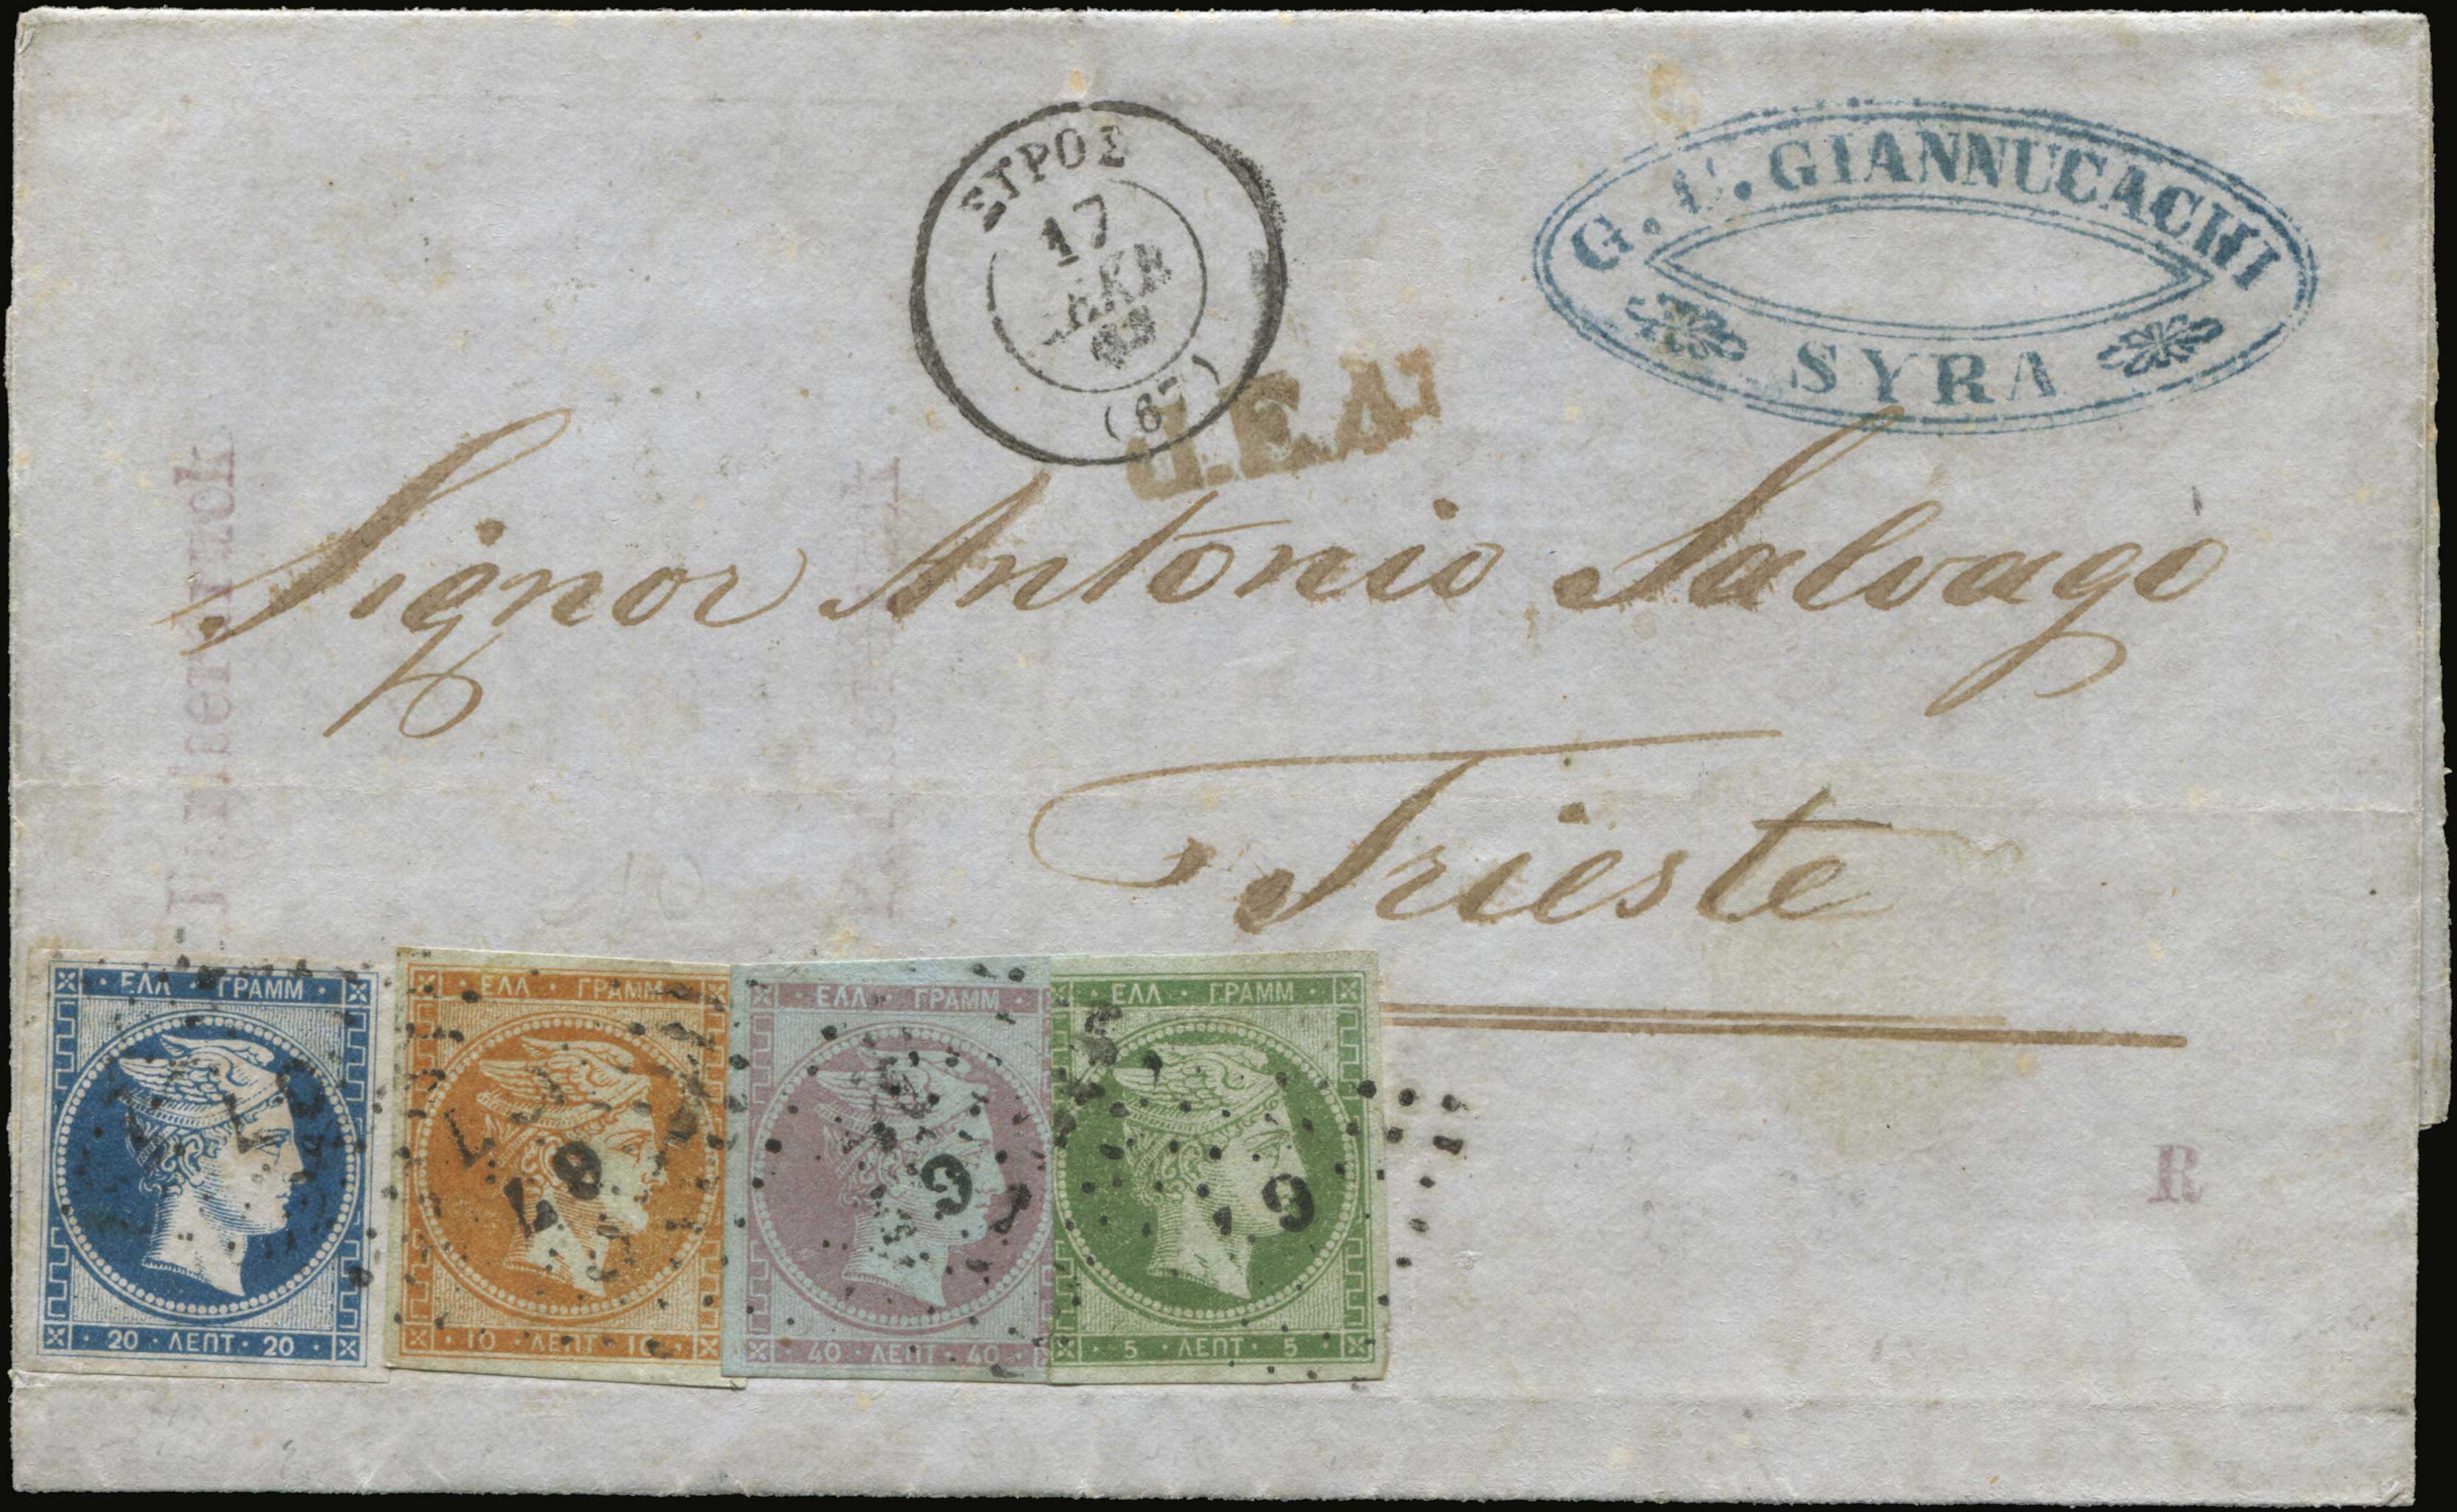 ΣΥΡΟΣ
17
ΔΕΚΕ
(67)
GIANNUCACHI
SYRA
Signor Antonio Salvagò
Trieste
ΕΛΛ · ΓΡΑΜΜ
20 · ΛΕΠΤ · 20
ΕΛΛ · ΓΡΑΜΜ
10 · ΛΕΠΤ · 10
67
ΕΛΛ · ΓΡΑΜΜ
40 · ΛΕΠΤ · 40
ΕΛΛ · ΓΡΑΜΜ
5 · ΛΕΠΤ · 5
R